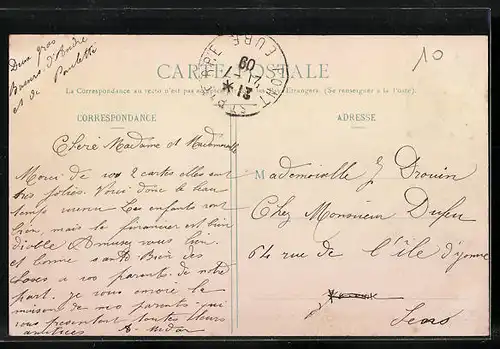 Deux gros
Baisers d'André
et de Paulette
10
CARTE POSTALE
PONT-ST-PIERRE EURE
21 -7 09
La Correspondance au recto n'est pas Etrangers. (Se renseigner à la Poste).
CORRESPONDANCE
ADRESSE
Cheré Madame et Mademoiselle
Merci de vos 2 cartes elles sont
très jolies. Voici donc le beau
temps venu Les enfants vont
bien mais le financier est bien
Amusez vous bien
et bonne santé Bien des
choses a vos parents de notre
part. je vous envoie la
maison de mes parents qui
vous présentent toutes leurs
amitiées
Mademoiselle J Drouin
Chez Monsieur
64 rue de l'île d'yonne
Sens